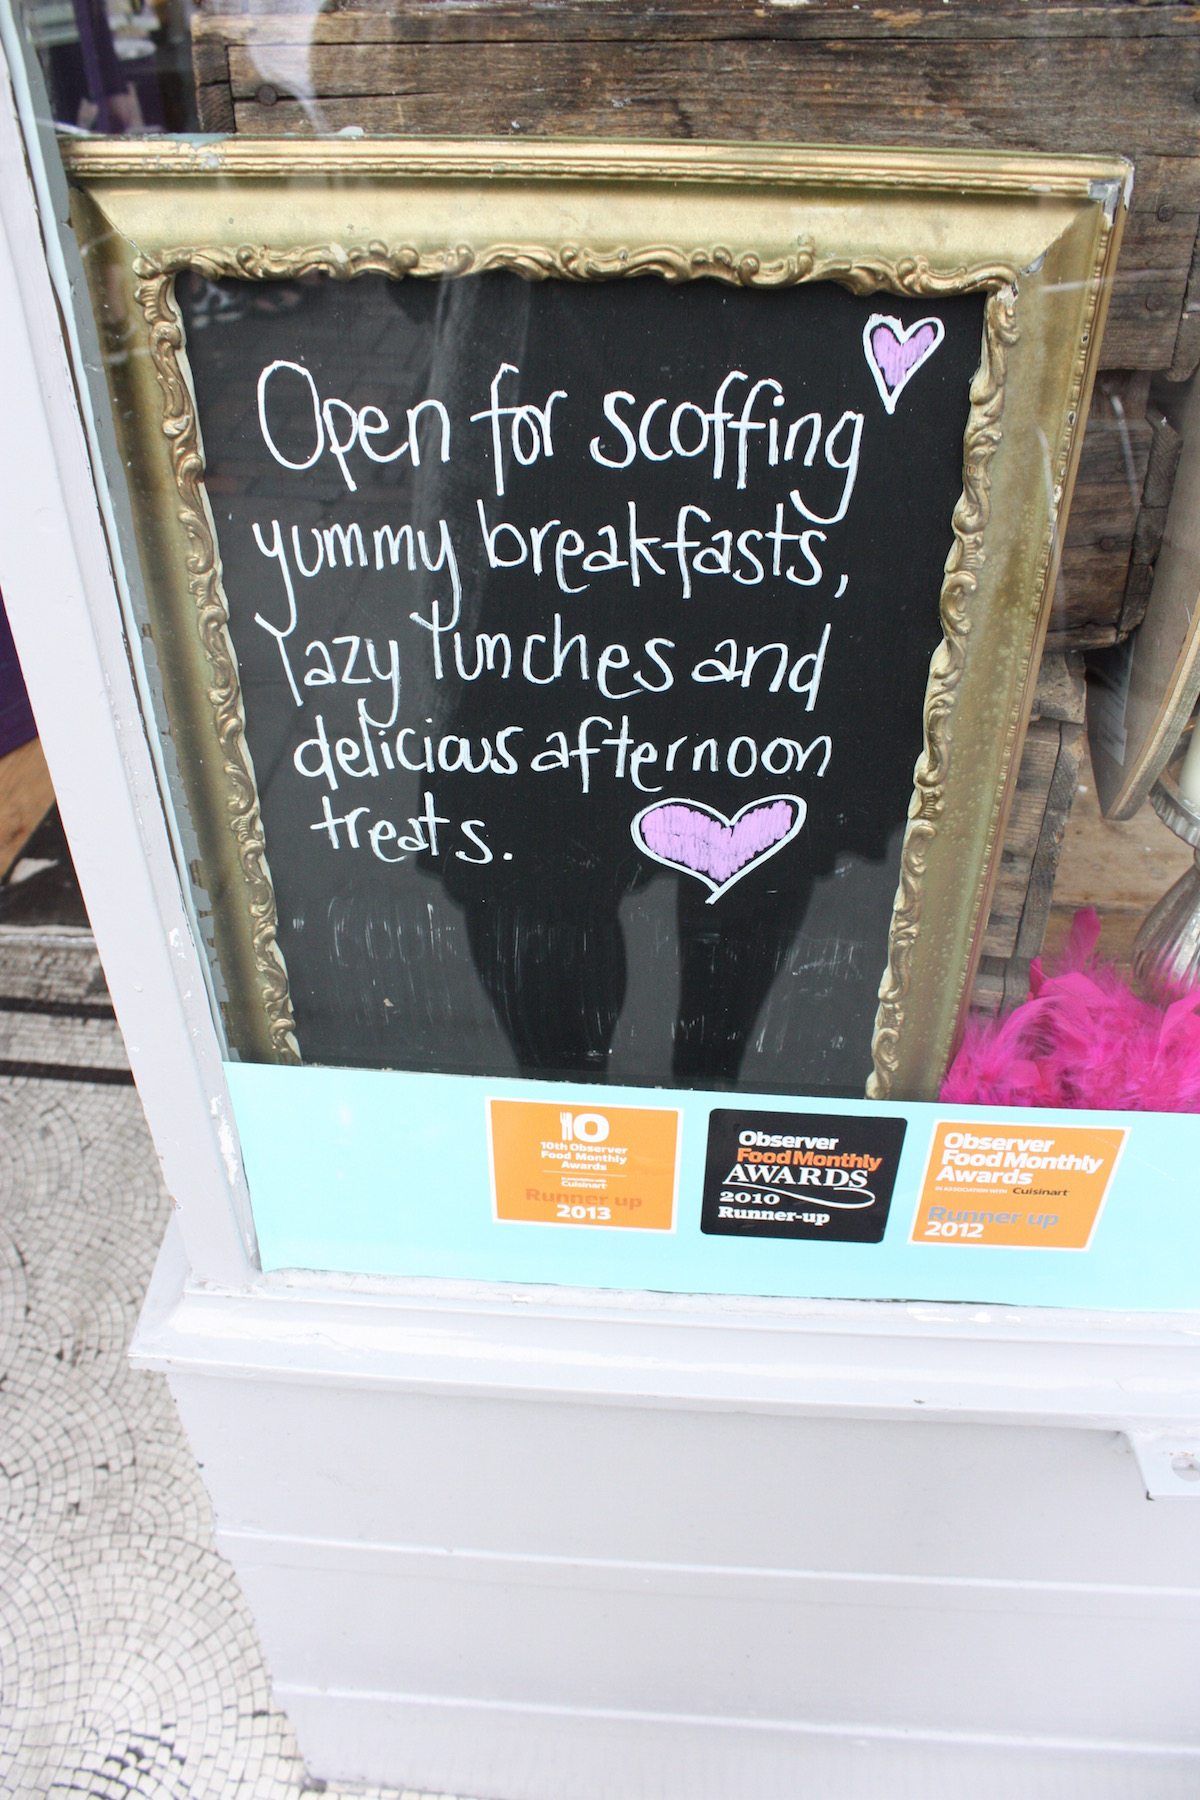 Open for scoffing
yummy breakfasts,
lazy lunches and
delicious afternoon
treats.
10
10th Observer
Food Monthly
Awards
Cuisinart
Runner up
2013
Observer
Food Monthly
AWARDS
2010
Runner-up
Observer
Food Monthly
Awards
IN ASSOCIATION WITH Cuisinart
Runner up
2012